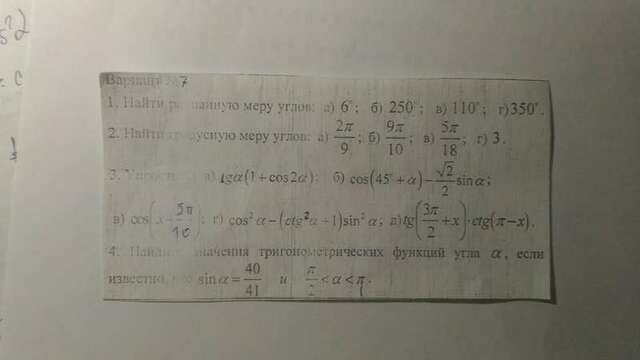 Вариант №7
1. Найти радианную меру углов: а) 6°; б) 250°; в) 110°; г) 350°.
2. Найти градусную меру углов: а) 2π/9; б) 9π/10; в) 5π/18; г) 3.
3. Упростить: а) tgα(1+cos2α); б) cos(45°+α)−√2/2 sinα;
в) cos(x−5π/10); г) cos²α−(ctg²α+1)sin²α; д) tg(3π/2+x)·ctg(π−x).
4. Найдите значения тригонометрических функций угла α, если
известно, что sinα=40/41 и π/2<α<π.